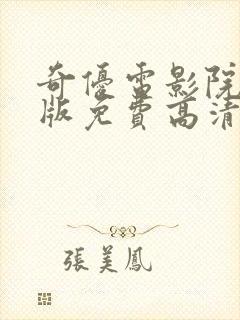 奇優雷影院
版免費高清
張美鳳